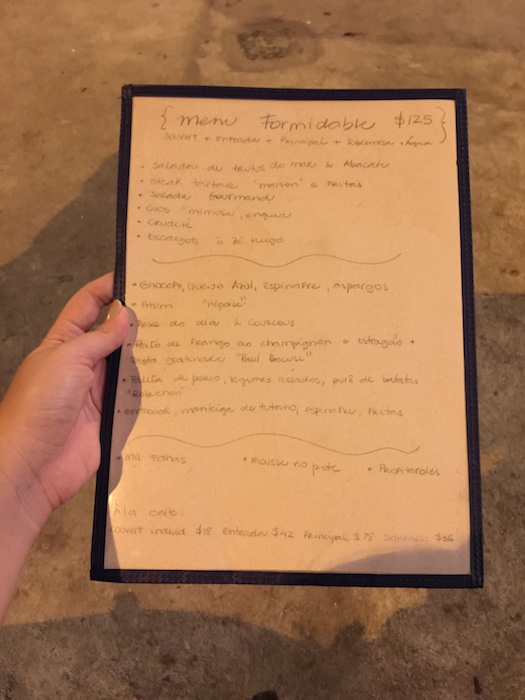 { Menu Formidable $125 }
Couvert + Entrada + Principal + Sobremesa + Água
• Salada de frutos do mar & Abacate
• Steak tartare "maison" e fritas
• Salada Gourmand
• Ovos "mimosa", enguia
• Crudité
• Escargots à
• Gnocchi, queijo Azul, espinafre, aspargos
• Atum "niçoise"
do dia & couscous
• Peito de Frango ao champignon e estragão +
Pasta gratinada "Paul Bocuse"
de porco, legumes assados, purê de batatas
"Robuchon"
• entrecôte, manteiga de tutano, espinafre, fritas
• Mil Folhas • mousse no pote • Profiteroles
À la carte:
Couvert individ $18 Entrada $42 Principal $78 Sobremesa $36